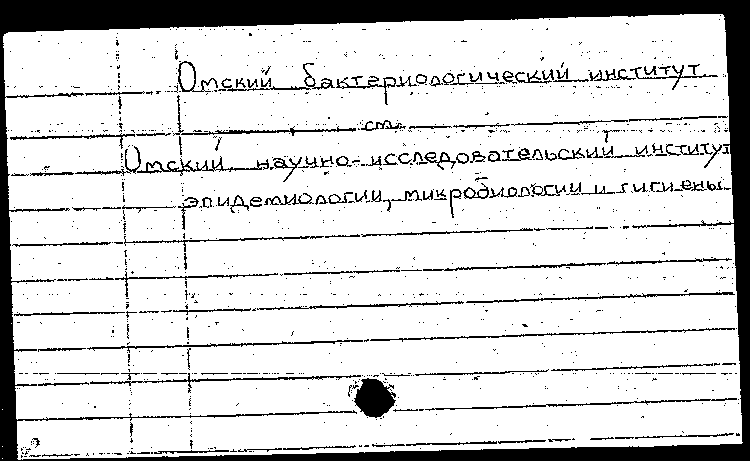 Омский бактериологический институт
см.
Омский научно-исследовательский институт
эпидемиологии, микробиологии и гигиены